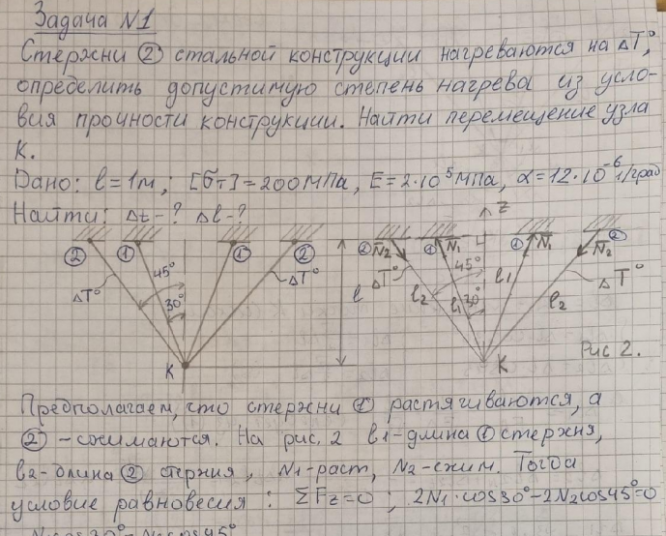 Задача N1
Стержни ② стальной конструкции нагреваются на ΔT°,
определить допустимую степень нагрева из усло-
вия прочности конструкции. Найти перемещение узла
К.
Дано: l=1м; [σт]=200МПа, E=2·10⁵МПа, α=12·10⁻⁶1/град
Найти: Δt-? Δl-?
② ① ① ②
ΔT° 45° 30° ΔT°
K
l
z
② N₂ ① N₁ ① N₁ ② N₂
ΔT° 45° l₁ ΔT°
l₂ l₁ 30° l₂
K
Рис 2.
Предполагаем, что стержни ① растягиваются, а
② -сжимаются. На рис. 2 l₁-длина ① стержня,
l₂-длина ② стержня, N₁-раст, N₂-сжим. Тогда
условие равновесия: ΣFz=0; 2N₁·cos30°-2N₂cos45°=0